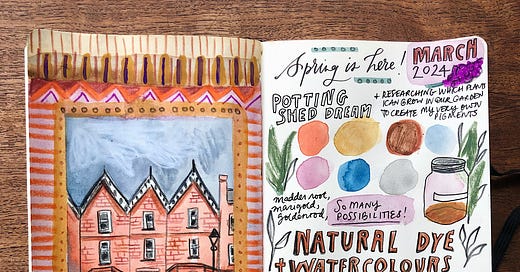 Spring is here!
MARCH
2024
POTTING
SHED DREAM
+ RESEARCHING WHICH PLANTS
I CAN GROW IN OUR GARDEN
TO CREATE MY VERY OWN
PIGMENTS
madder root,
marigold,
goldenrod,
SO MANY
POSSIBILITIES!
NATURAL DYE
+ WATERCOLOURS